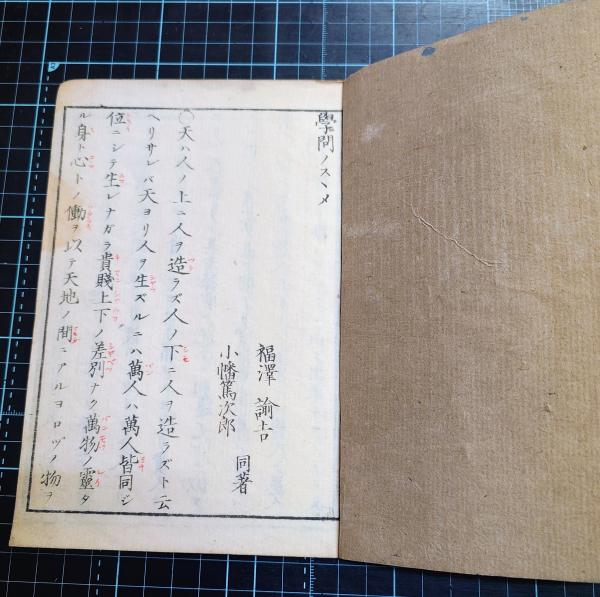 學問ノスヽメ
福澤諭吉
小幡篤次郎
同著
〇天ハ人ノ上ニ人ヲ造ラズ人ノ下ニ人ヲ造ラズト云
ヘリサレバ天ヨリ人ヲ生ズルニハ萬人ハ萬人皆同ジ
位ニシテ生レナガラ貴賤上下ノ差別ナク萬物ノ靈タ
ル身ト心トノ働ヲ以テ天地ノ間ニアルヨロヅノ物ヲ